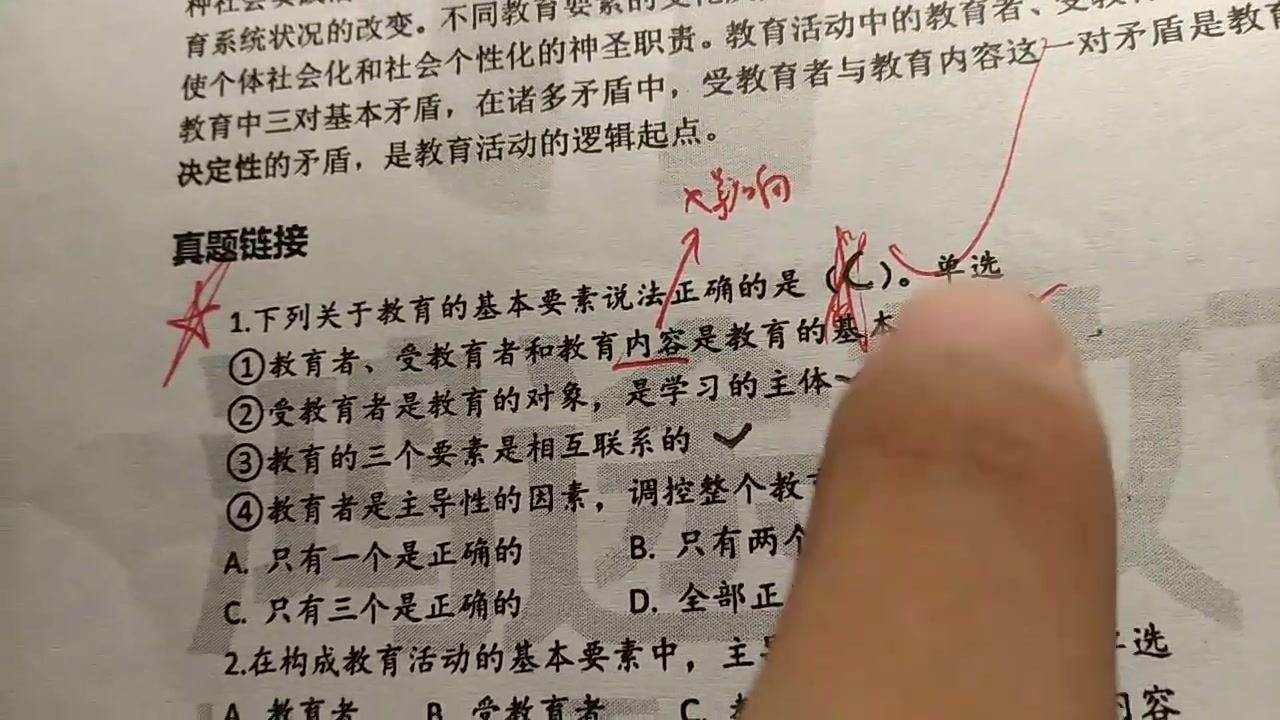 育系统状况的改变。不同教育要素的变化
使个体社会化和社会个性化的神圣职责。教育活动中的教育者、受教
教育中三对基本矛盾，在诸多矛盾中，受教育者与教育内容这一对矛盾是教育
决定性的矛盾，是教育活动的逻辑起点。
影响
真题链接
1.下列关于教育的基本要素说法正确的是（C）。单选
①教育者、受教育者和教育内容是教育的基本
②受教育者是教育的对象，是学习的主体
③教育的三个要素是相互联系的 ✓
④教育者是主导性的因素，调控整个教育
A. 只有一个是正确的 B. 只有两个
C. 只有三个是正确的 D. 全部正
2.在构成教育活动的基本要素中，主导 单选
A. 教育者 B. 受教育者 C. 内容